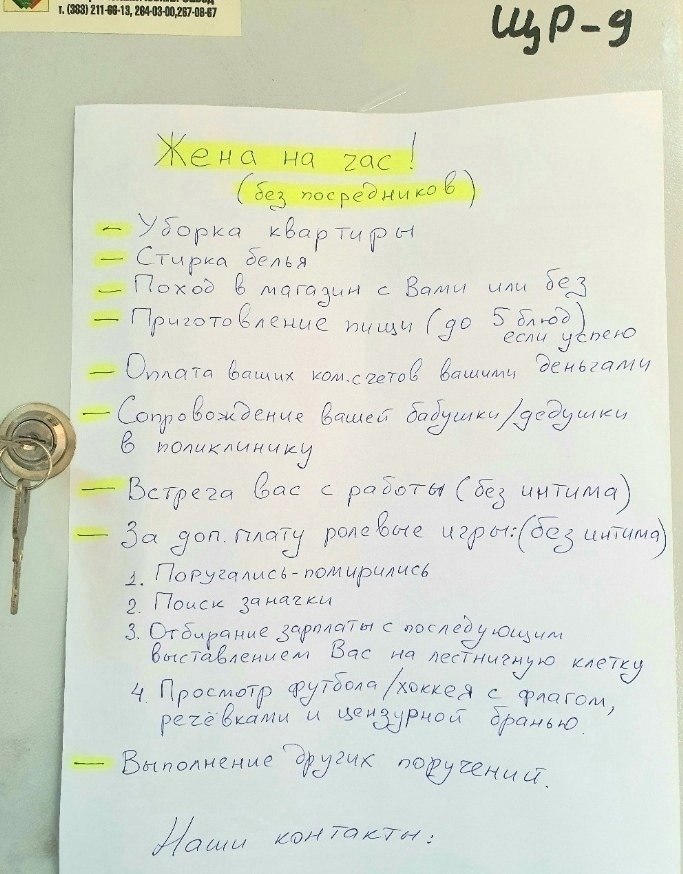 т. (383) 211-66-13, 264-03-00, 267-08-67
ЩР-9
Жена на час!
(без посредников)
— Уборка квартиры
— Стирка белья
— Поход в магазин с Вами или без
— Приготовление пищи (до 5 блюд)
если успею
— Оплата ваших ком.счетов вашими деньгами
— Сопровождение вашей бабушки/дедушки
в поликлинику
— Встреча вас с работы (без интима)
— За доп. плату ролевые игры: (без интима)
1. Поругались-помирились
2. Поиск заначки
3. Отбирание зарплаты с последующим
выставлением Вас на лестничную клетку
4. Просмотр футбола/хоккея с флагом,
речёвками и цензурной бранью.
— Выполнение других поручений.
Наши контакты: